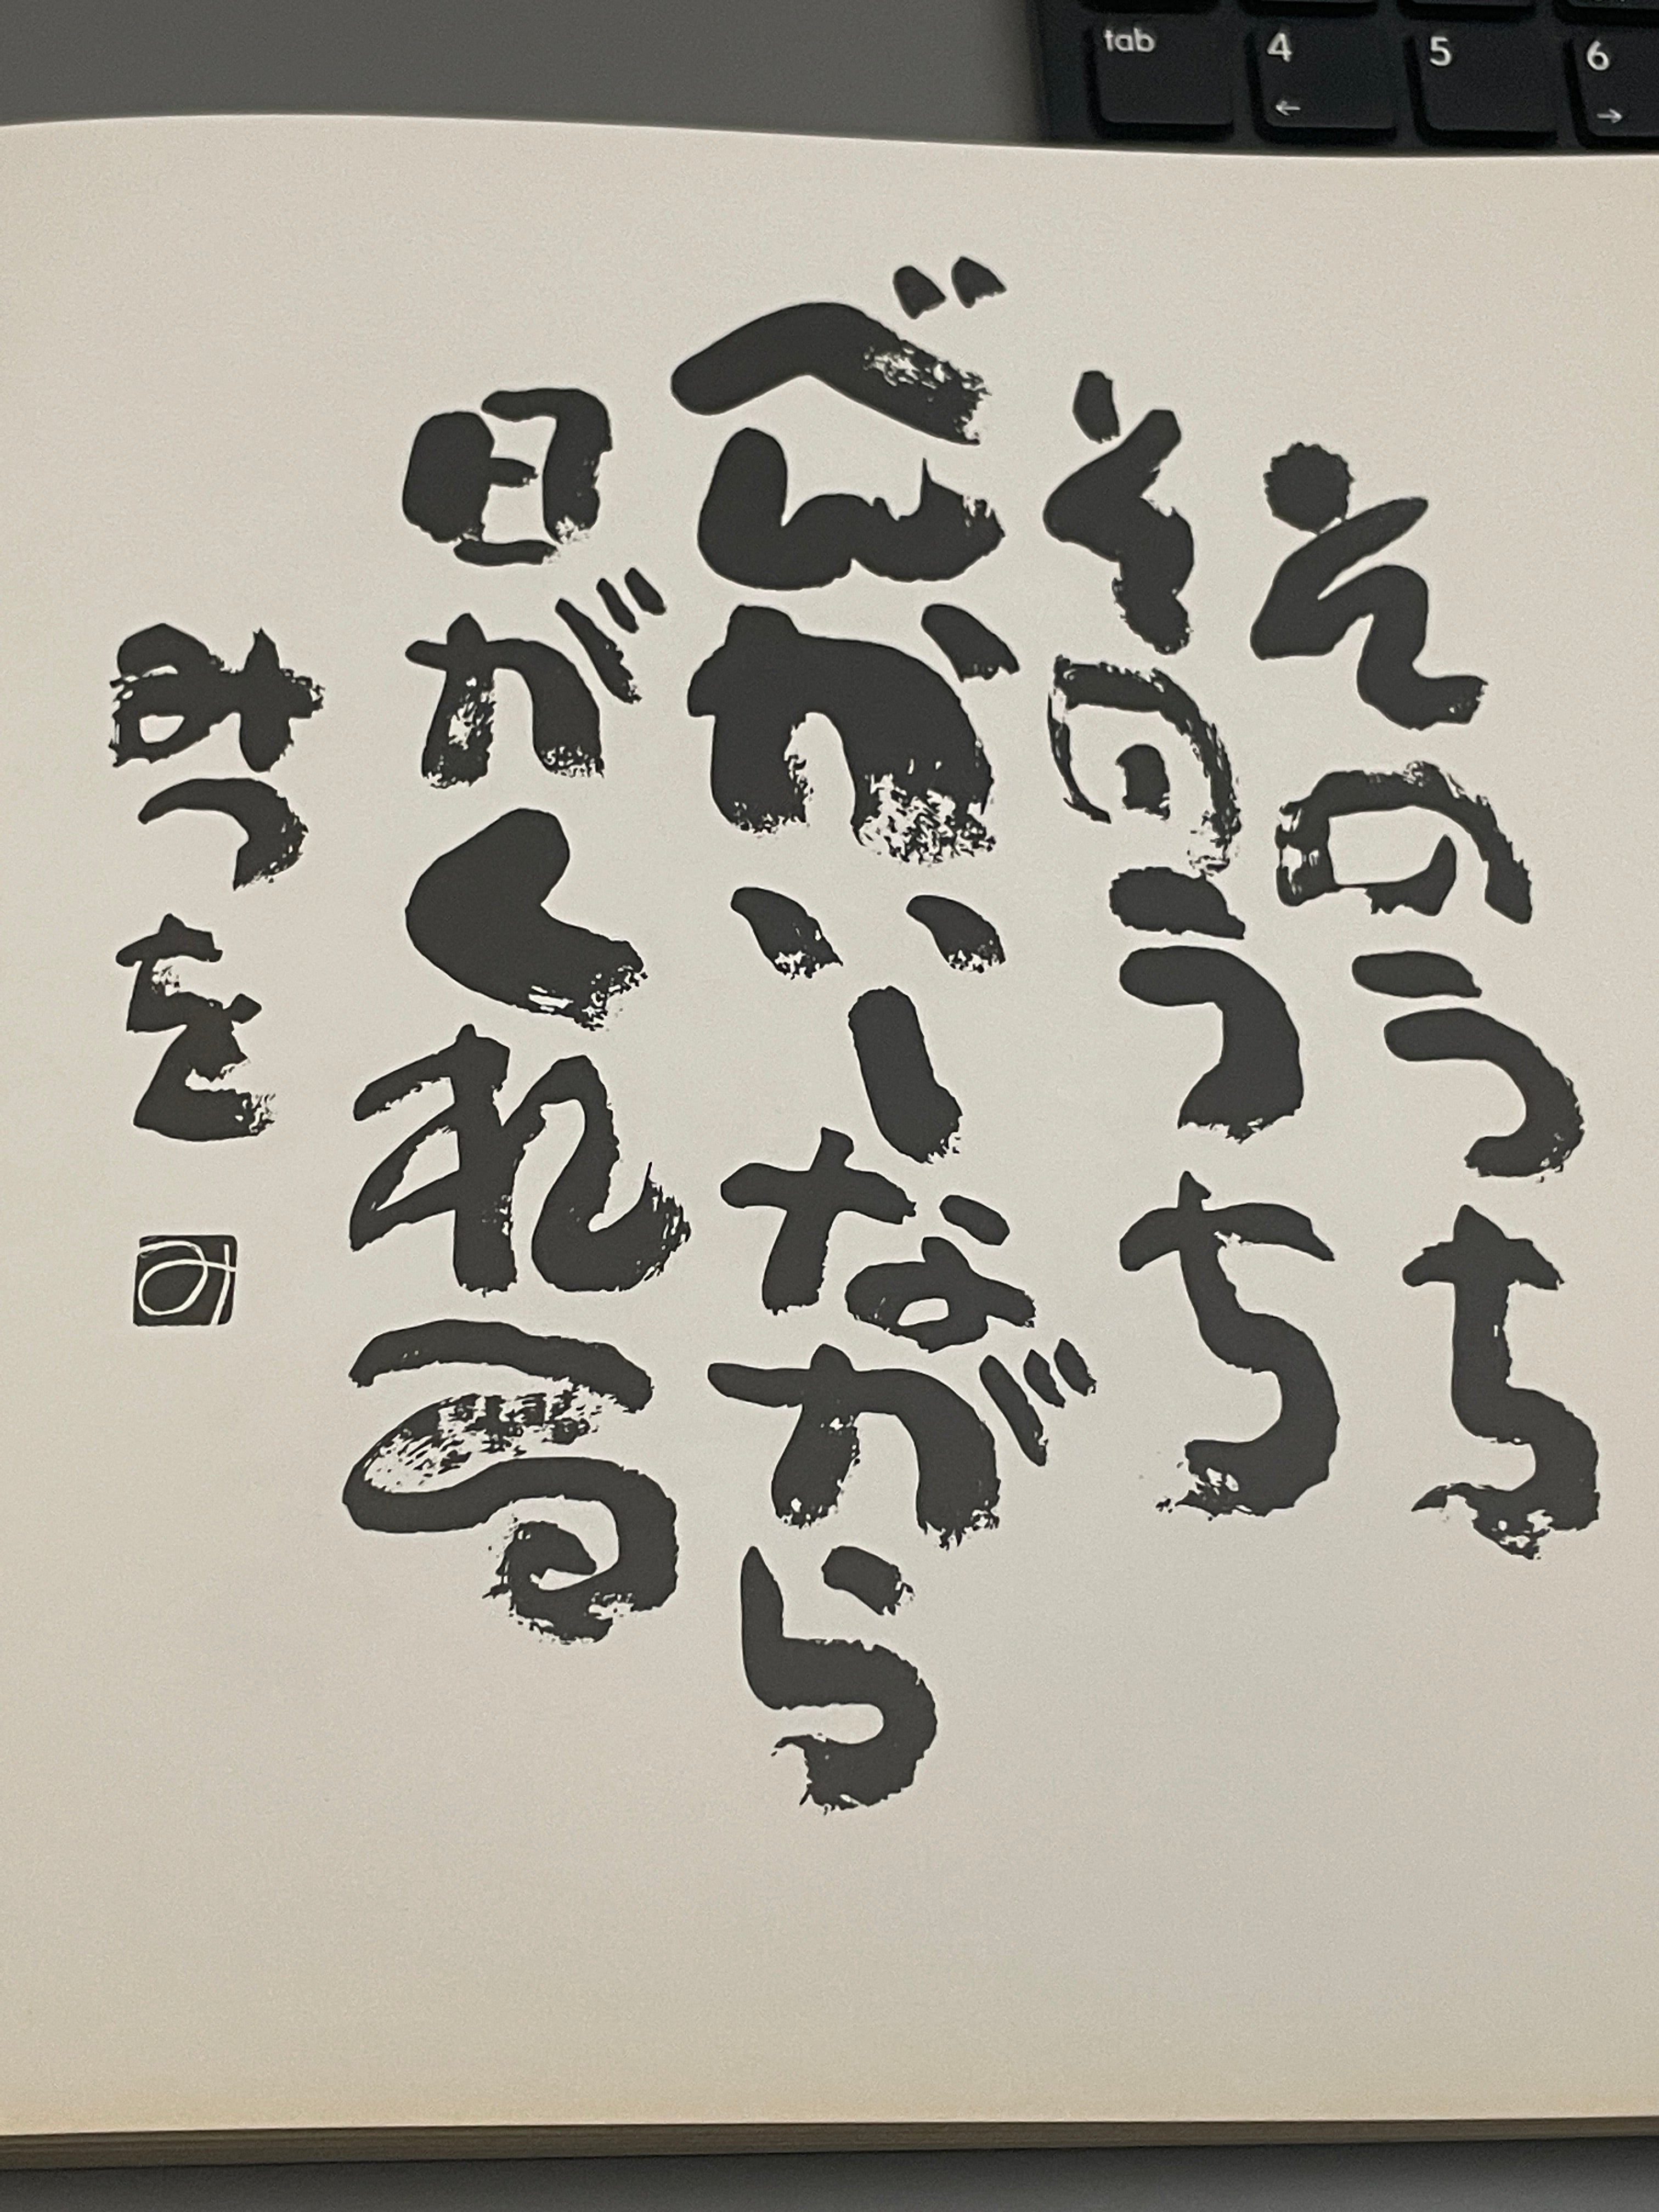 そのうち
そのうち
べんかいしながら
日がくれる
みつを
み
tab
4
←
5
6
→